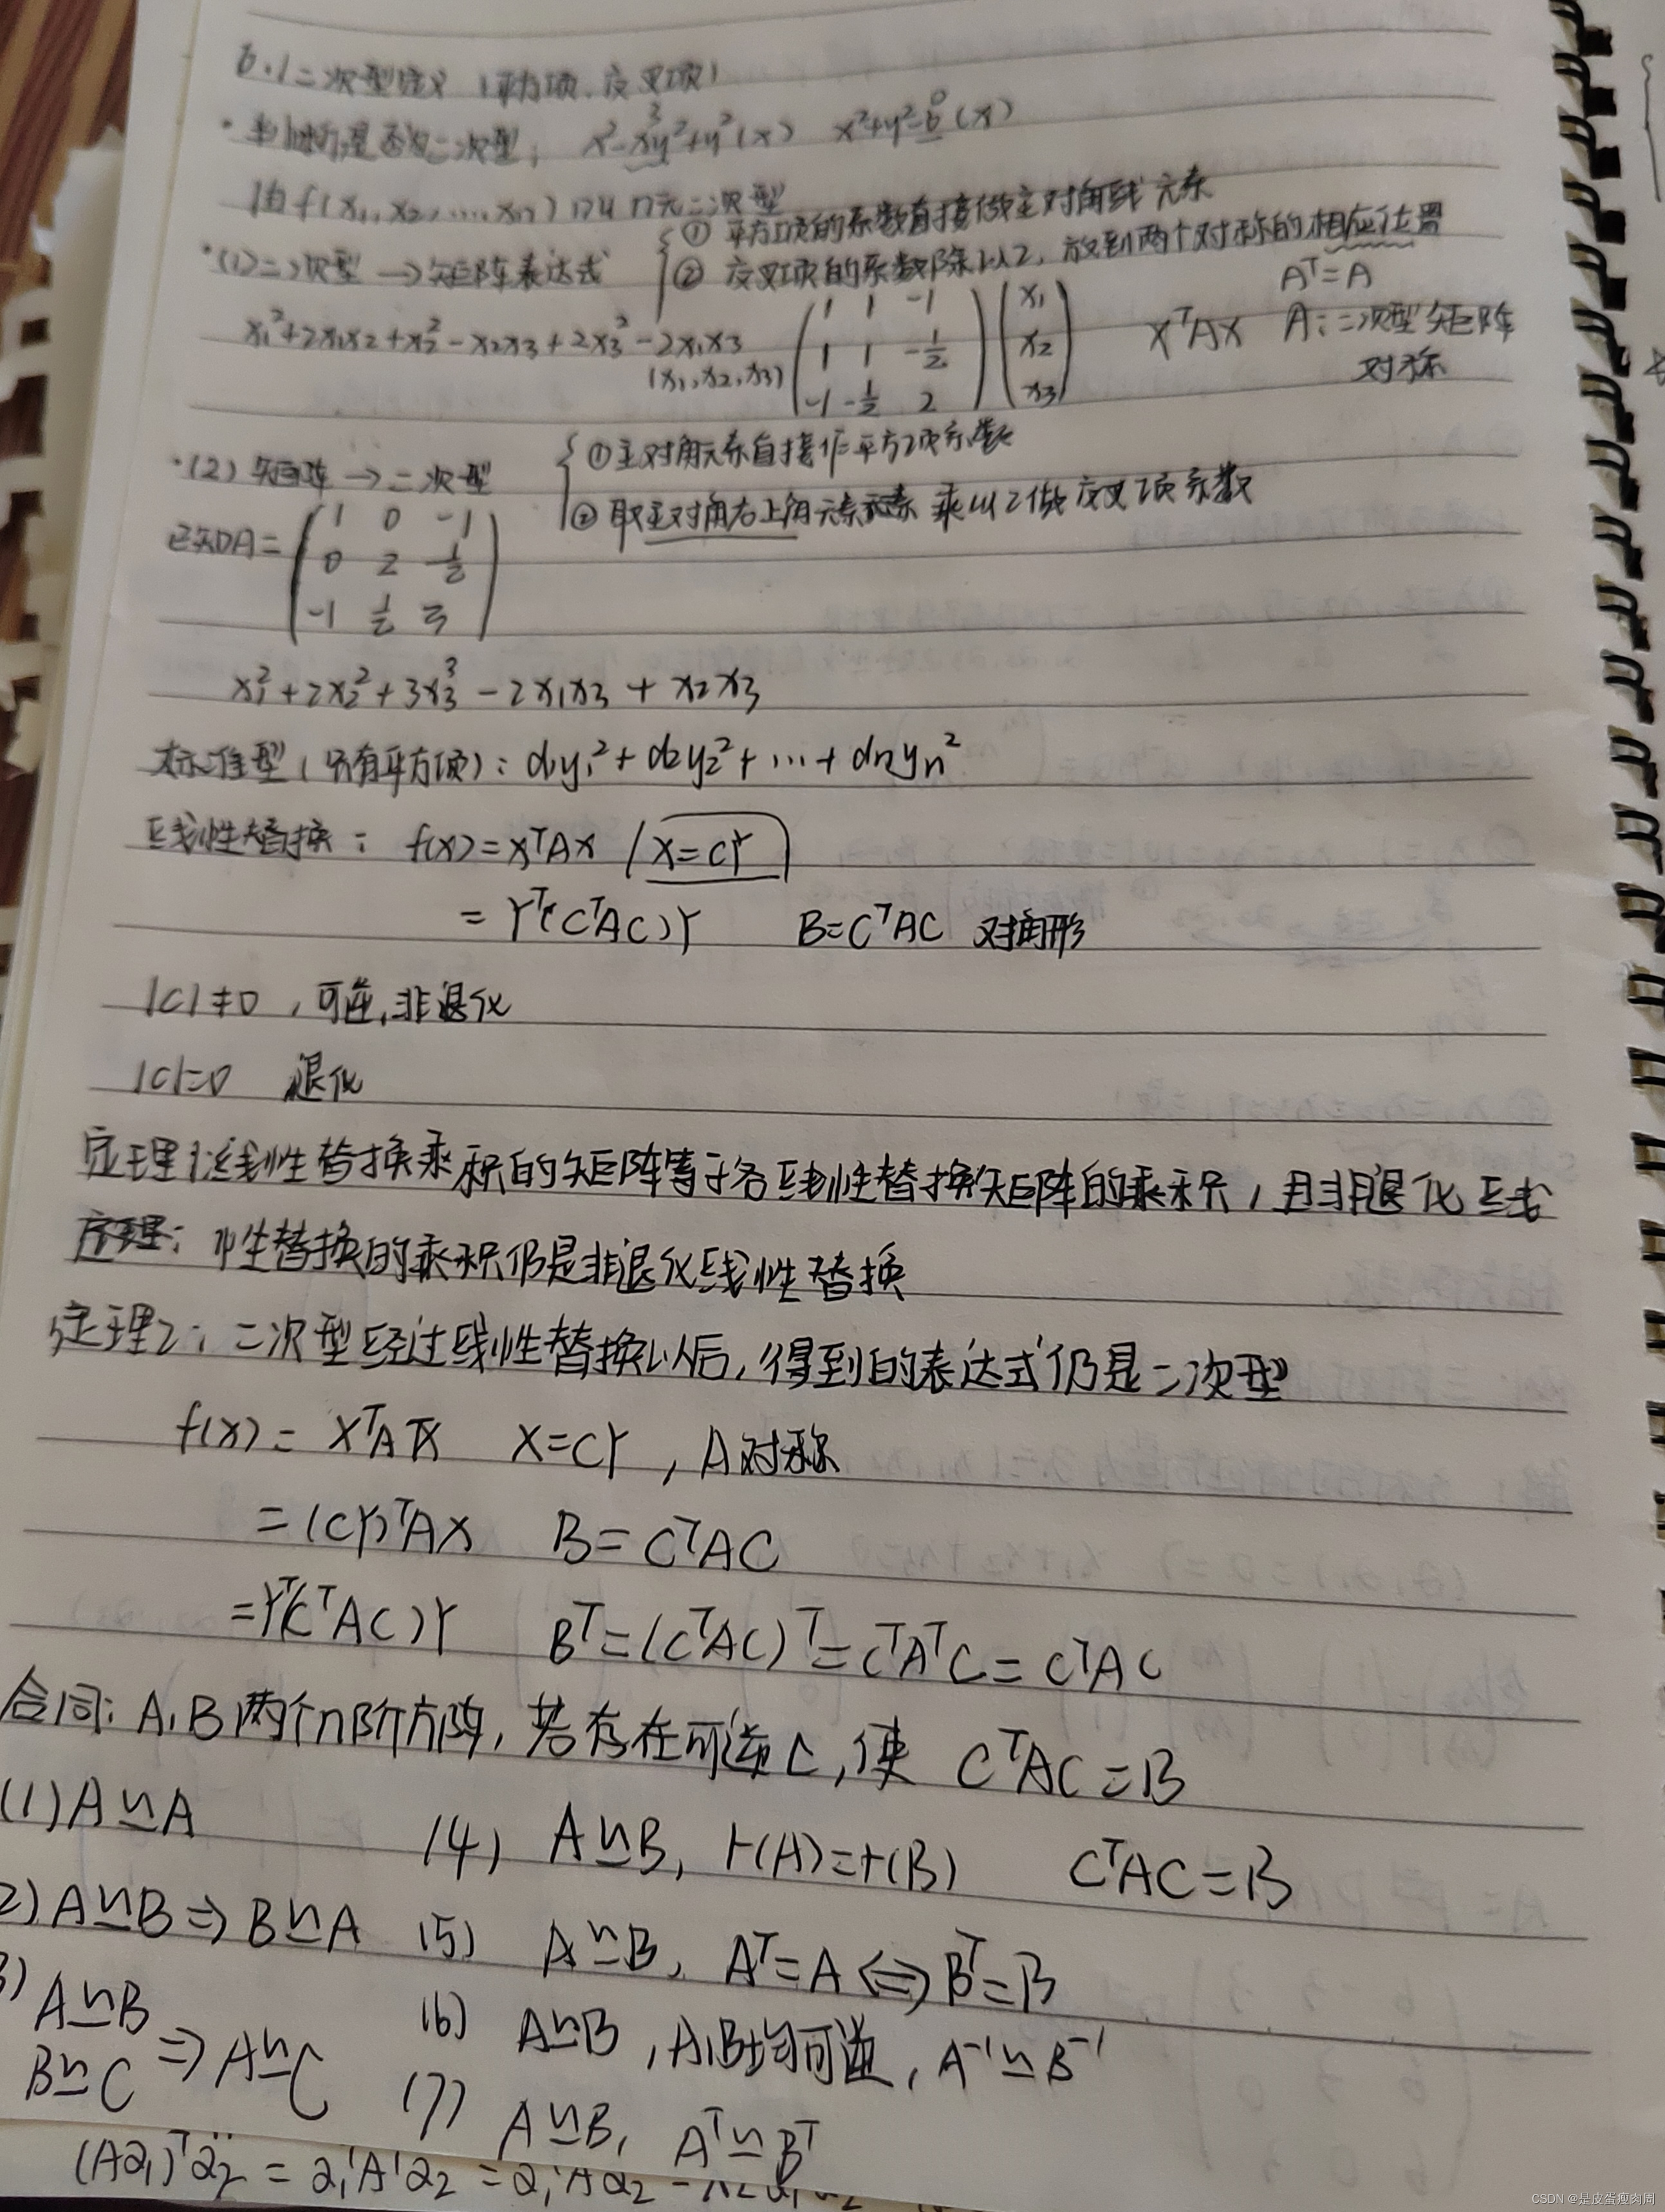 6.1二次型定义（平方项、交叉项）
·判断是否为二次型： x²-xy²+y²(x) x²+y²-6(x)
3 0
由f(x₁,x₂,...,xn) 叫n元二次型
①平方项的系数直接做主对角线元素
·(1)二次型→矩阵表达式 ②交叉项的系数除以2，放到两个对称的相应位置
Aᵀ=A
x₁²+2x₁x₂+x₂²-x₂x₃+2x₃²-2x₁x₃
(x₁,x₂,x₃) ( 1 1 -1 ) ( x₁ )
( 1 1 -1/2 ) ( x₂ ) XᵀAX A:二次型矩阵
( -1 -1/2 2 ) ( x₃ ) 对称
·(2)矩阵→二次型 ①主对角元素直接作平方项系数
②取主对角右上角元素 乘以2做交叉项系数
已知A= ( 1 0 -1 )
( 0 2 1/2 )
( -1 1/2 3 )
x₁²+2x₂²+3x₃³-2x₁x₃+x₂x₃
标准型（只有平方项）：d₁y₁²+d₂y₂²+...+dnyn²
线性替换： f(x)=XᵀAX （X=CY）
=Yᵀ(CᵀAC)Y B=CᵀAC 对角形
|C|≠0，可逆，非退化
|C|=0 退化
定理1：线性替换乘积的矩阵等于各线性替换矩阵的乘积，且非退化线
性替换的乘积仍是非退化线性替换
定理2：二次型经过线性替换以后，得到的表达式仍是二次型
f(x)=XᵀAX X=CY，A对称
=(CY)ᵀAX B=CᵀAC
=Yᵀ(CᵀAC)Y Bᵀ=(CᵀAC)ᵀ=CᵀAᵀC=CᵀAC
合同：A,B两个n阶方阵，若存在可逆C，使 CᵀAC=B
(1)A≌A
(4) A≌B，r(A)=r(B) CᵀAC=B
2)A≌B⇒B≌A
(5) A≌B，Aᵀ=A⇔Bᵀ=B
3) A≌B
B≌C ⇒A≌C
(6) A≌B，A,B均可逆，A⁻¹≌B⁻¹
(7) A≌B，Aᵀ≌Bᵀ
(Aα₁)ᵀα₂=α₁'A'α₂=α₁'Aα₂
CSDN @是皮蛋瘦肉周